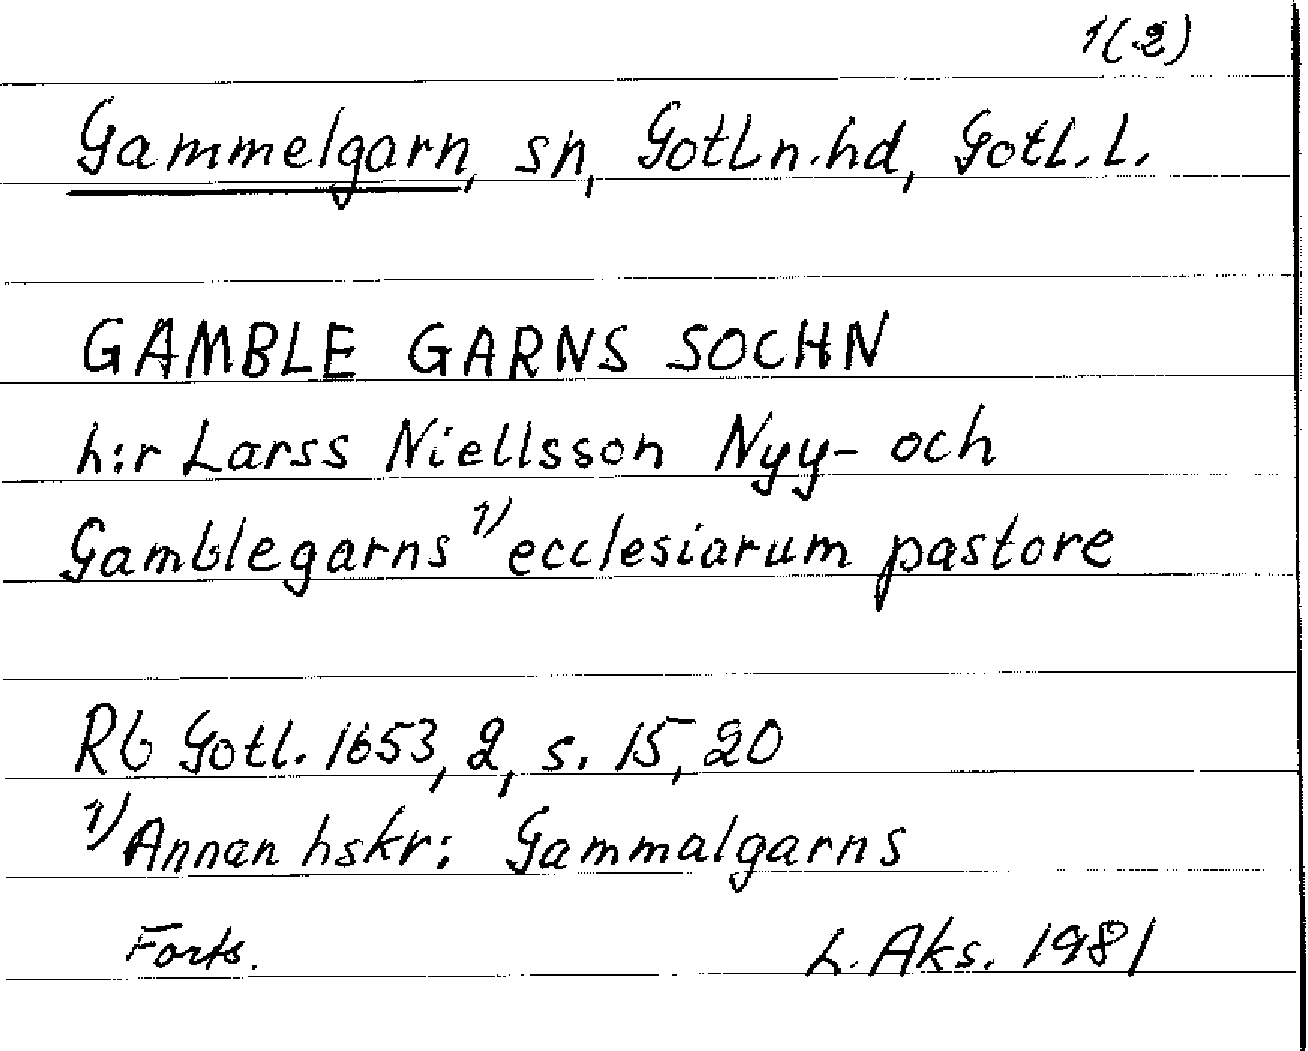 1(2)
Gammelgarn, sn, Gotl.n.hd, Gotl.l.
GAMBLE GARNS SOCHN
h:r Larss Niellsson Nyy- och
Gamblegarns 1) ecclesiarum pastore
Rb Gotl. 1653, 2, s. 15, 20
1) Annan hskr: Gammalgarns
Forts.
L. Aks. 1981